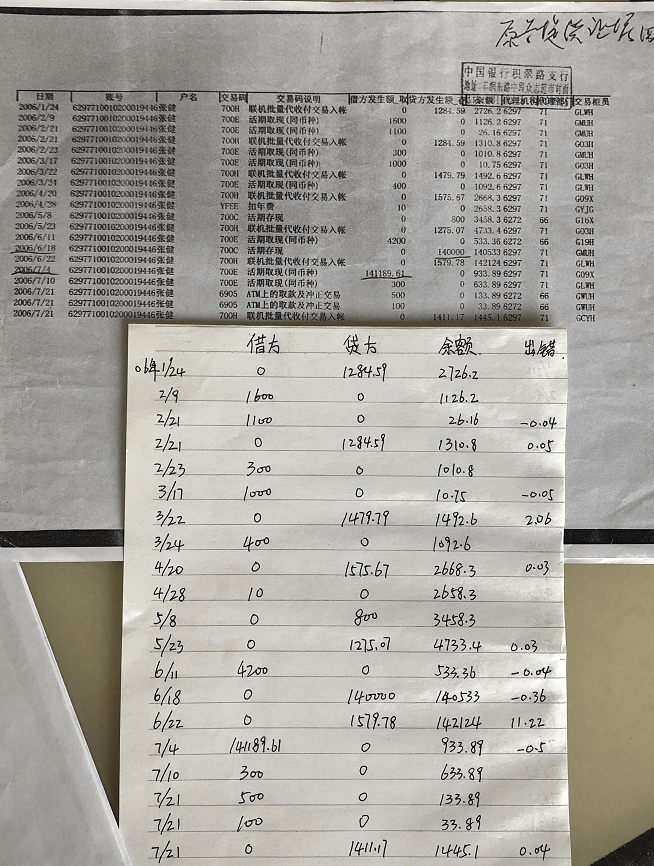 中国银行积翠路支行
日期 账号 户名 交易码 交易码说明 借方发生额_取 贷方发生额_ 余额 代理机构 交易柜员
2006/1/24 6297710010200019446 张健 700H 联机批量代收付交易入帐 1284.59 2726.2 6297 71 GLWH
2006/2/9 6297710010200019446 张健 700E 活期取现(同币种) 1600 1126.2 6297 71 GMUH
2006/2/21 6297710010200019446 张健 700E 活期取现(同币种) 1100 26.16 6297 71 GMUH
2006/2/21 6297710010200019446 张健 700H 联机批量代收付交易入帐 1284.59 1310.8 6297 71 G03H
2006/2/23 6297710010200019446 张健 700E 活期取现(同币种) 300 1010.8 6297 71 GMUH
2006/3/17 6297710010200019446 张健 700E 活期取现(同币种) 1000 10.75 6297 71 G03H
2006/3/22 6297710010200019446 张健 700H 联机批量代收付交易入帐 1479.79 1492.6 6297 71 GLWH
2006/3/24 6297710010200019446 张健 700E 活期取现(同币种) 400 1092.6 6297 71 GLWH
2006/4/20 6297710010200019446 张健 700H 联机批量代收付交易入帐 1575.67 2668.3 6297 71 G09X
2006/4/28 6297710010200019446 张健 YFEE 扣年费 10 2658.3 6297 71 GYJG
2006/5/8 6297710010200019446 张健 700C 活期存现 800 3458.3 6272 66 G16X
2006/5/23 6297710010200019446 张健 700H 联机批量代收付交易入帐 1275.07 4733.4 6297 71 G03H
2006/6/11 6297710010200019446 张健 700E 活期取现(同币种) 4200 533.36 6272 66 G19H
2006/6/18 6297710010200019446 张健 700C 活期存现 140000 140533 6297 71 GMUH
2006/6/22 6297710010200019446 张健 700H 联机批量代收付交易入帐 1579.78 142124 6297 71 GLWH
2006/7/4 6297710010200019446 张健 700E 活期取现(同币种) 141189.61 933.89 6297 71 G09X
2006/7/10 6297710010200019446 张健 700E 活期取现(同币种) 300 633.89 6297 71 GLWH
2006/7/21 6297710010200019446 张健 6905 ATM上的取款及冲正交易 500 133.89 6272 66 GWUH
2006/7/21 6297710010200019446 张健 6905 ATM上的取款及冲正交易 100 33.89 6272 66 GWUH
2006/7/21 6297710010200019446 张健 700H 联机批量代收付交易入帐 1411.17 1445.1 6297 71 GCYH
借方 贷方 余额 出错
06年1/24 0 1284.59 2726.2
2/9 1600 0 1126.2
2/21 1100 0 26.16 -0.04
2/21 0 1284.59 1310.8 0.05
2/23 300 0 1010.8
3/17 1000 0 10.75 -0.05
3/22 0 1479.79 1492.6 2.06
3/24 400 0 1092.6
4/20 0 1575.67 2668.3 0.03
4/28 10 0 2658.3
5/8 0 800 3458.3
5/23 0 1275.07 4733.4 0.03
6/11 4200 0 533.36 -0.04
6/18 0 140000 140533 -0.36
6/22 0 1579.78 142124 11.22
7/4 141189.61 0 933.89 -0.5
7/10 300 0 633.89
7/21 500 0 133.89
7/21 100 0 33.89
7/21 0 1411.17 1445.1 0.04